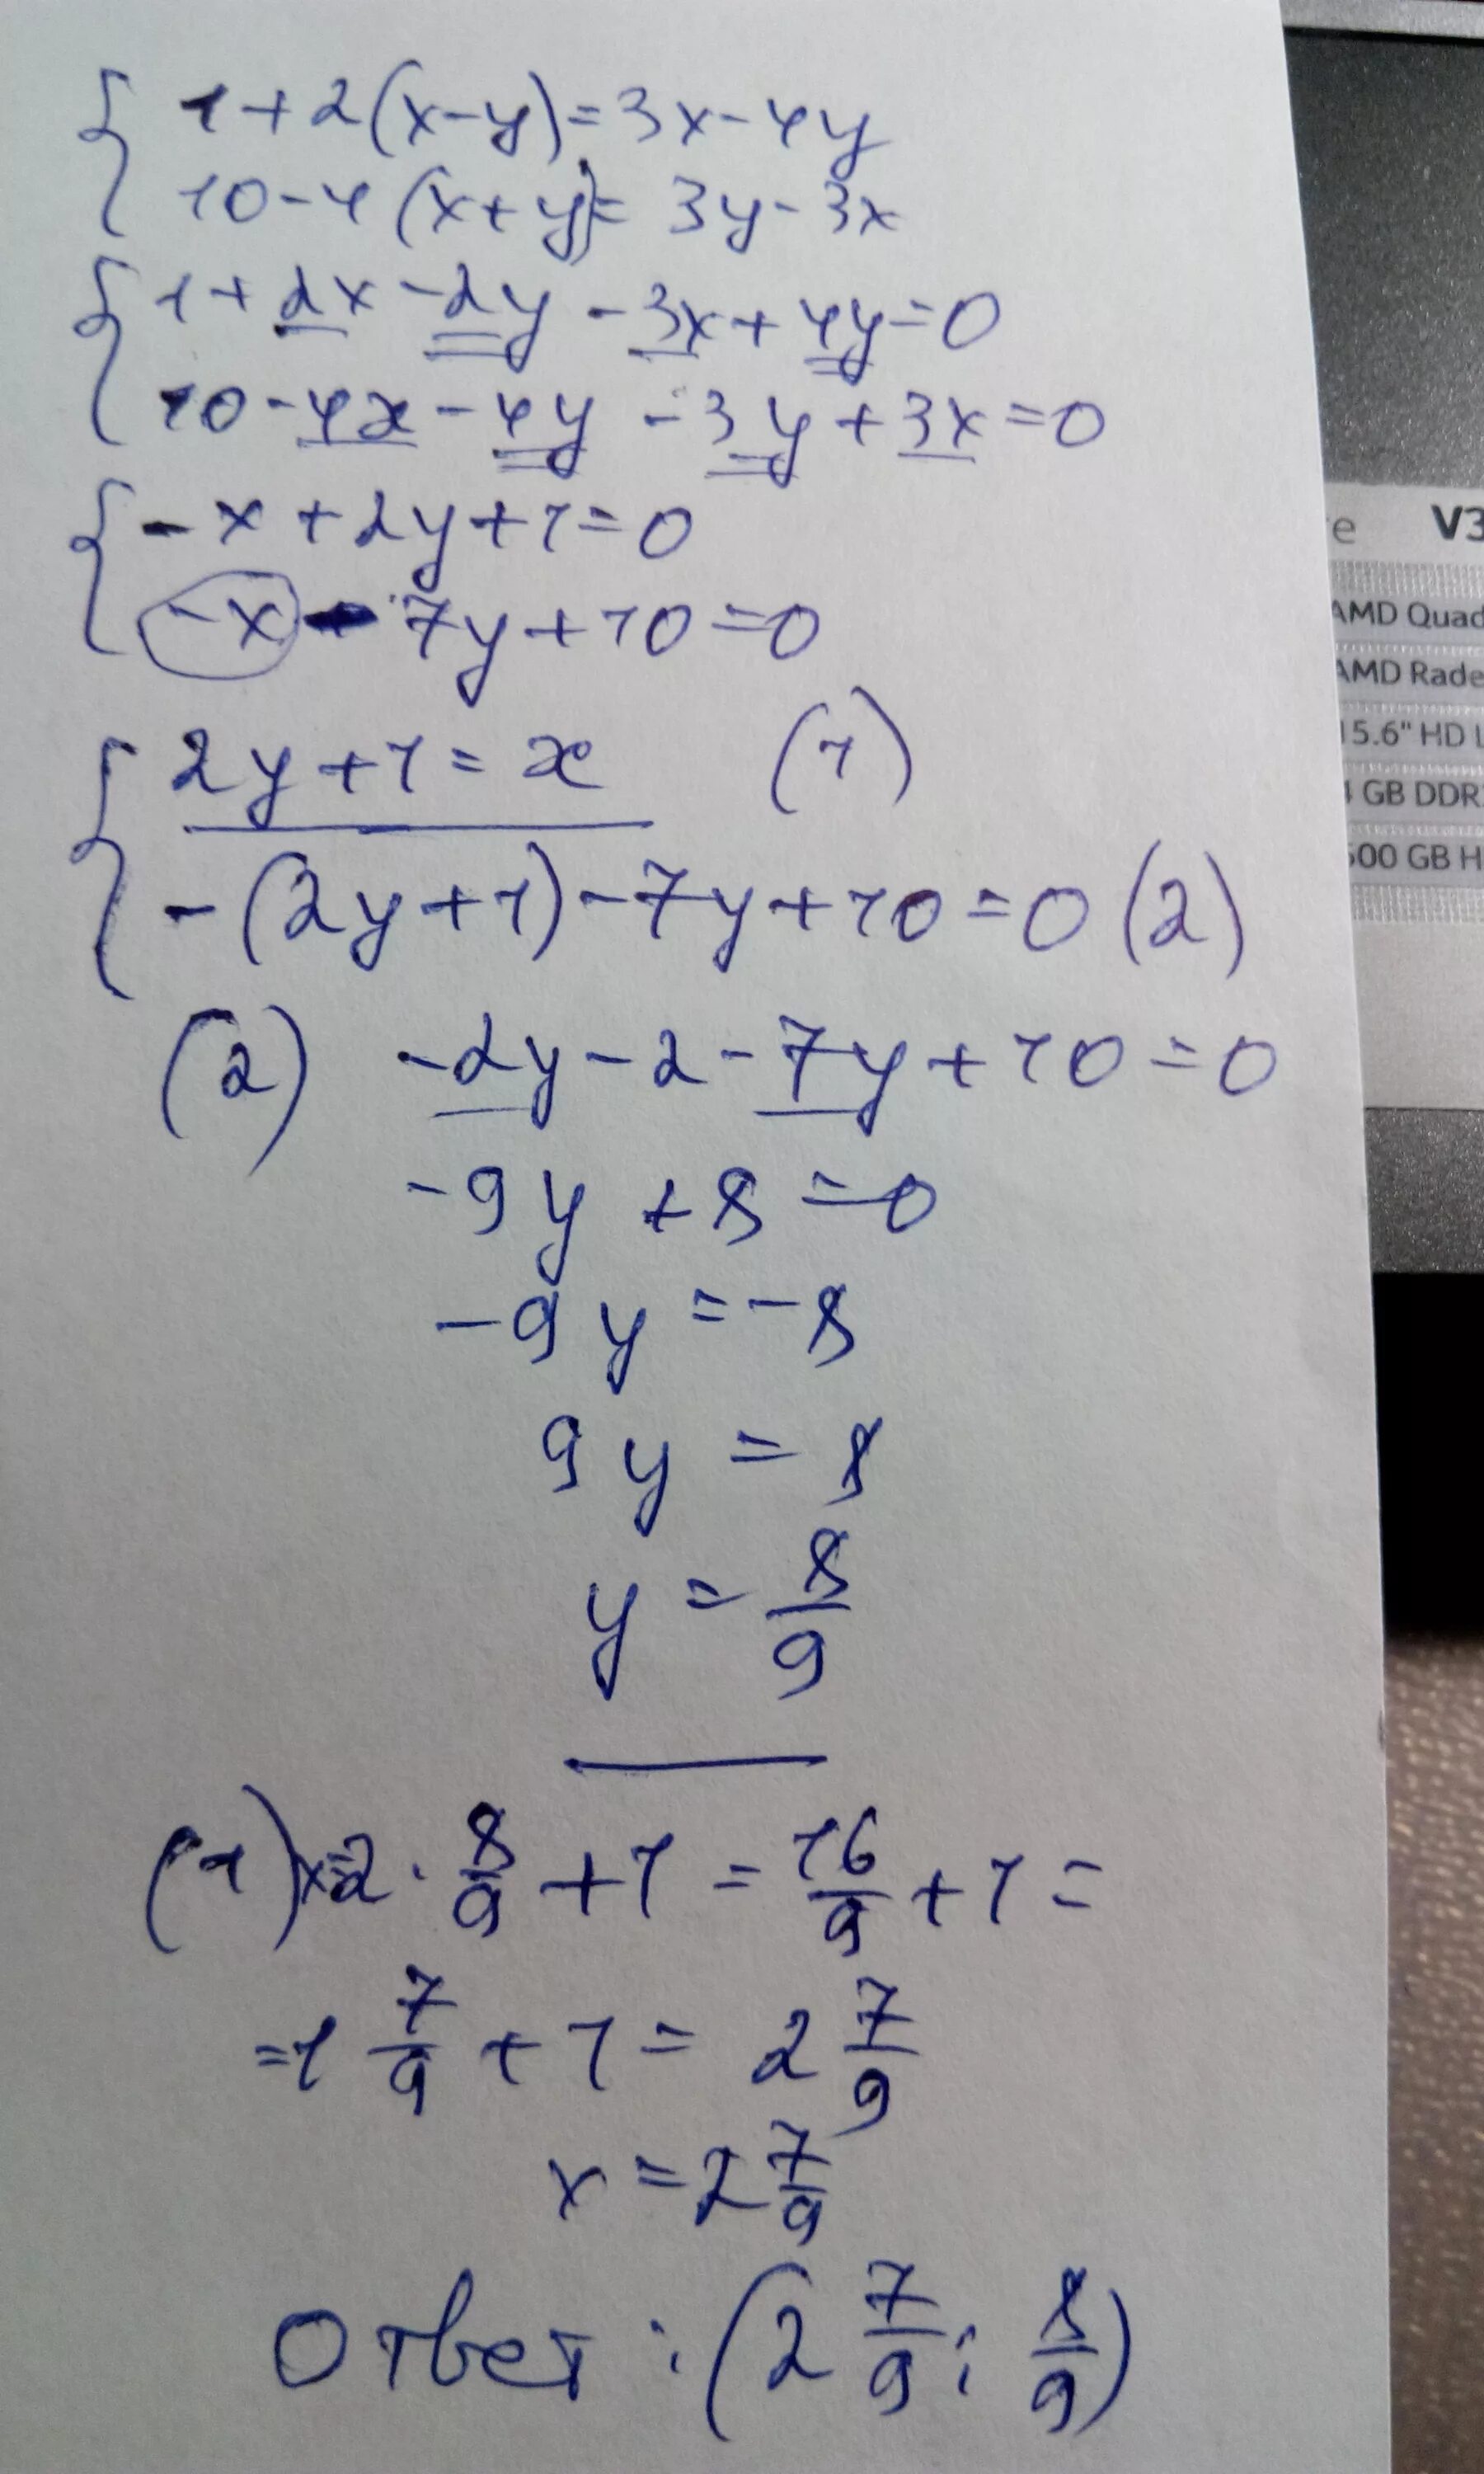 { 1+2(x-y)=3x-4y
10-4(x+y)=3y-3x
{ 1+2x-2y-3x+4y=0
10-4x-4y-3y+3x=0
{ -x+2y+1=0
-x-7y+10=0
{ 2y+1=x (1)
-(2y+1)-7y+10=0 (2)
(2) -2y-2-7y+10=0
-9y+8=0
-9y=-8
9y=8
y=8/9
(1) x=2·8/9+1=16/9+1=
=1 7/9+1=2 7/9
x=2 7/9
Ответ: (2 7/9; 8/9)
V3
AMD Quad
AMD Rade
15.6" HD L
4 GB DDR
500 GB H